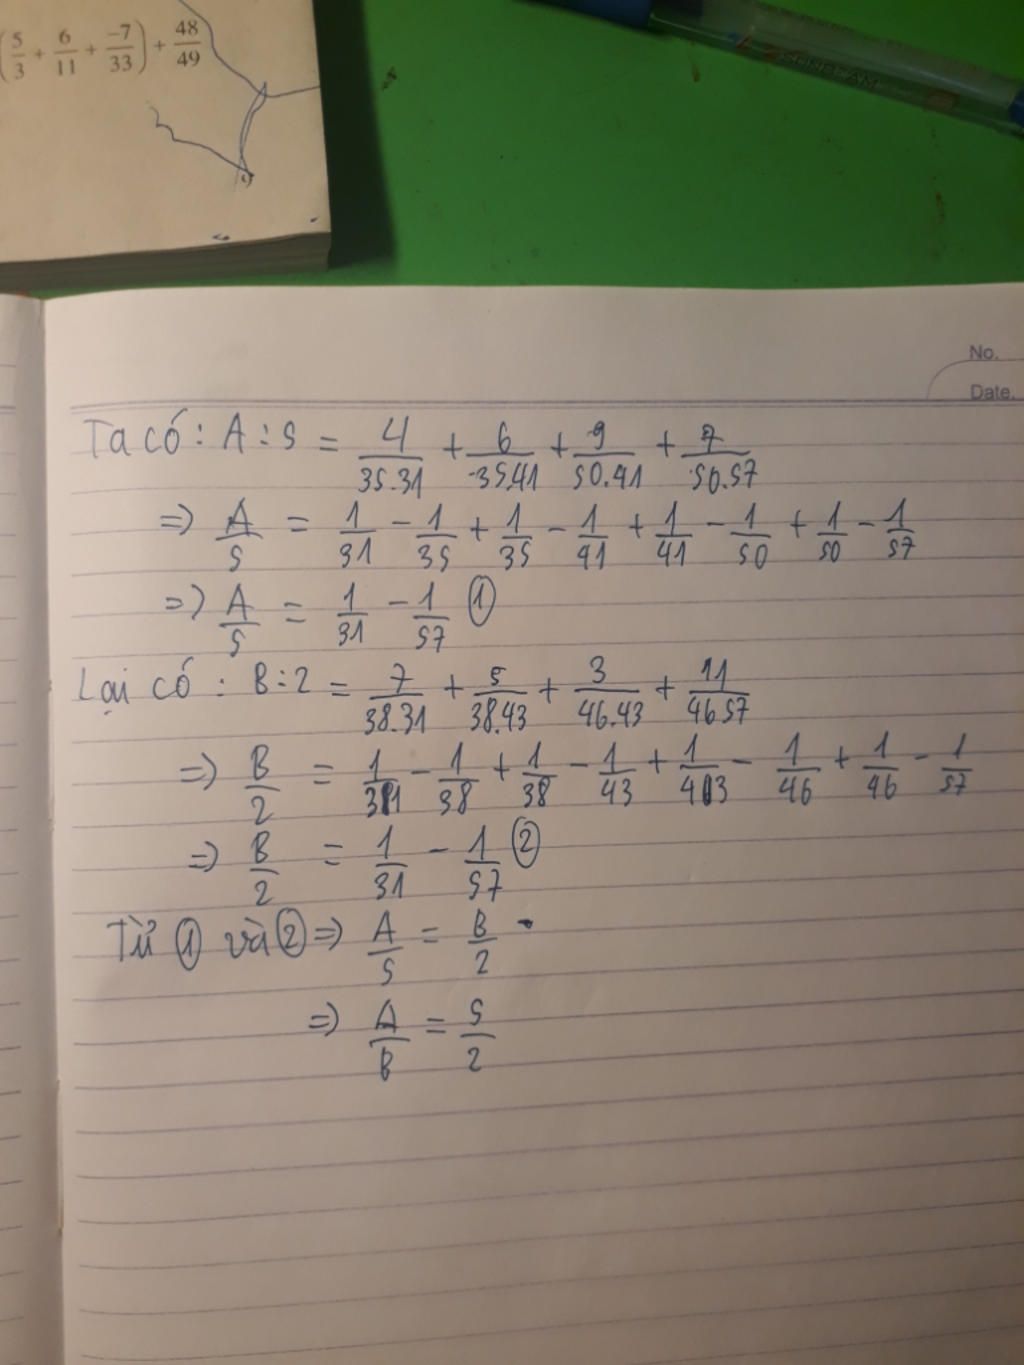 (5/3 + 6/11 + -7/33) + 48/49
No.
Date.
Ta có: A : 5 = 4/35.31 + 6/35.41 + 9/50.41 + 7/50.57
=> A/5 = 1/31 - 1/35 + 1/35 - 1/41 + 1/41 - 1/50 + 1/50 - 1/57
=> A/5 = 1/31 - 1/57 ①
Lại có : B : 2 = 7/38.31 + 5/38.43 + 3/46.43 + 11/46.57
=> B/2 = 1/31 - 1/38 + 1/38 - 1/43 + 1/43 - 1/46 + 1/46 - 1/57
=> B/2 = 1/31 - 1/57 ②
Từ ① và ② => A/5 = B/2
=> A/B = 5/2